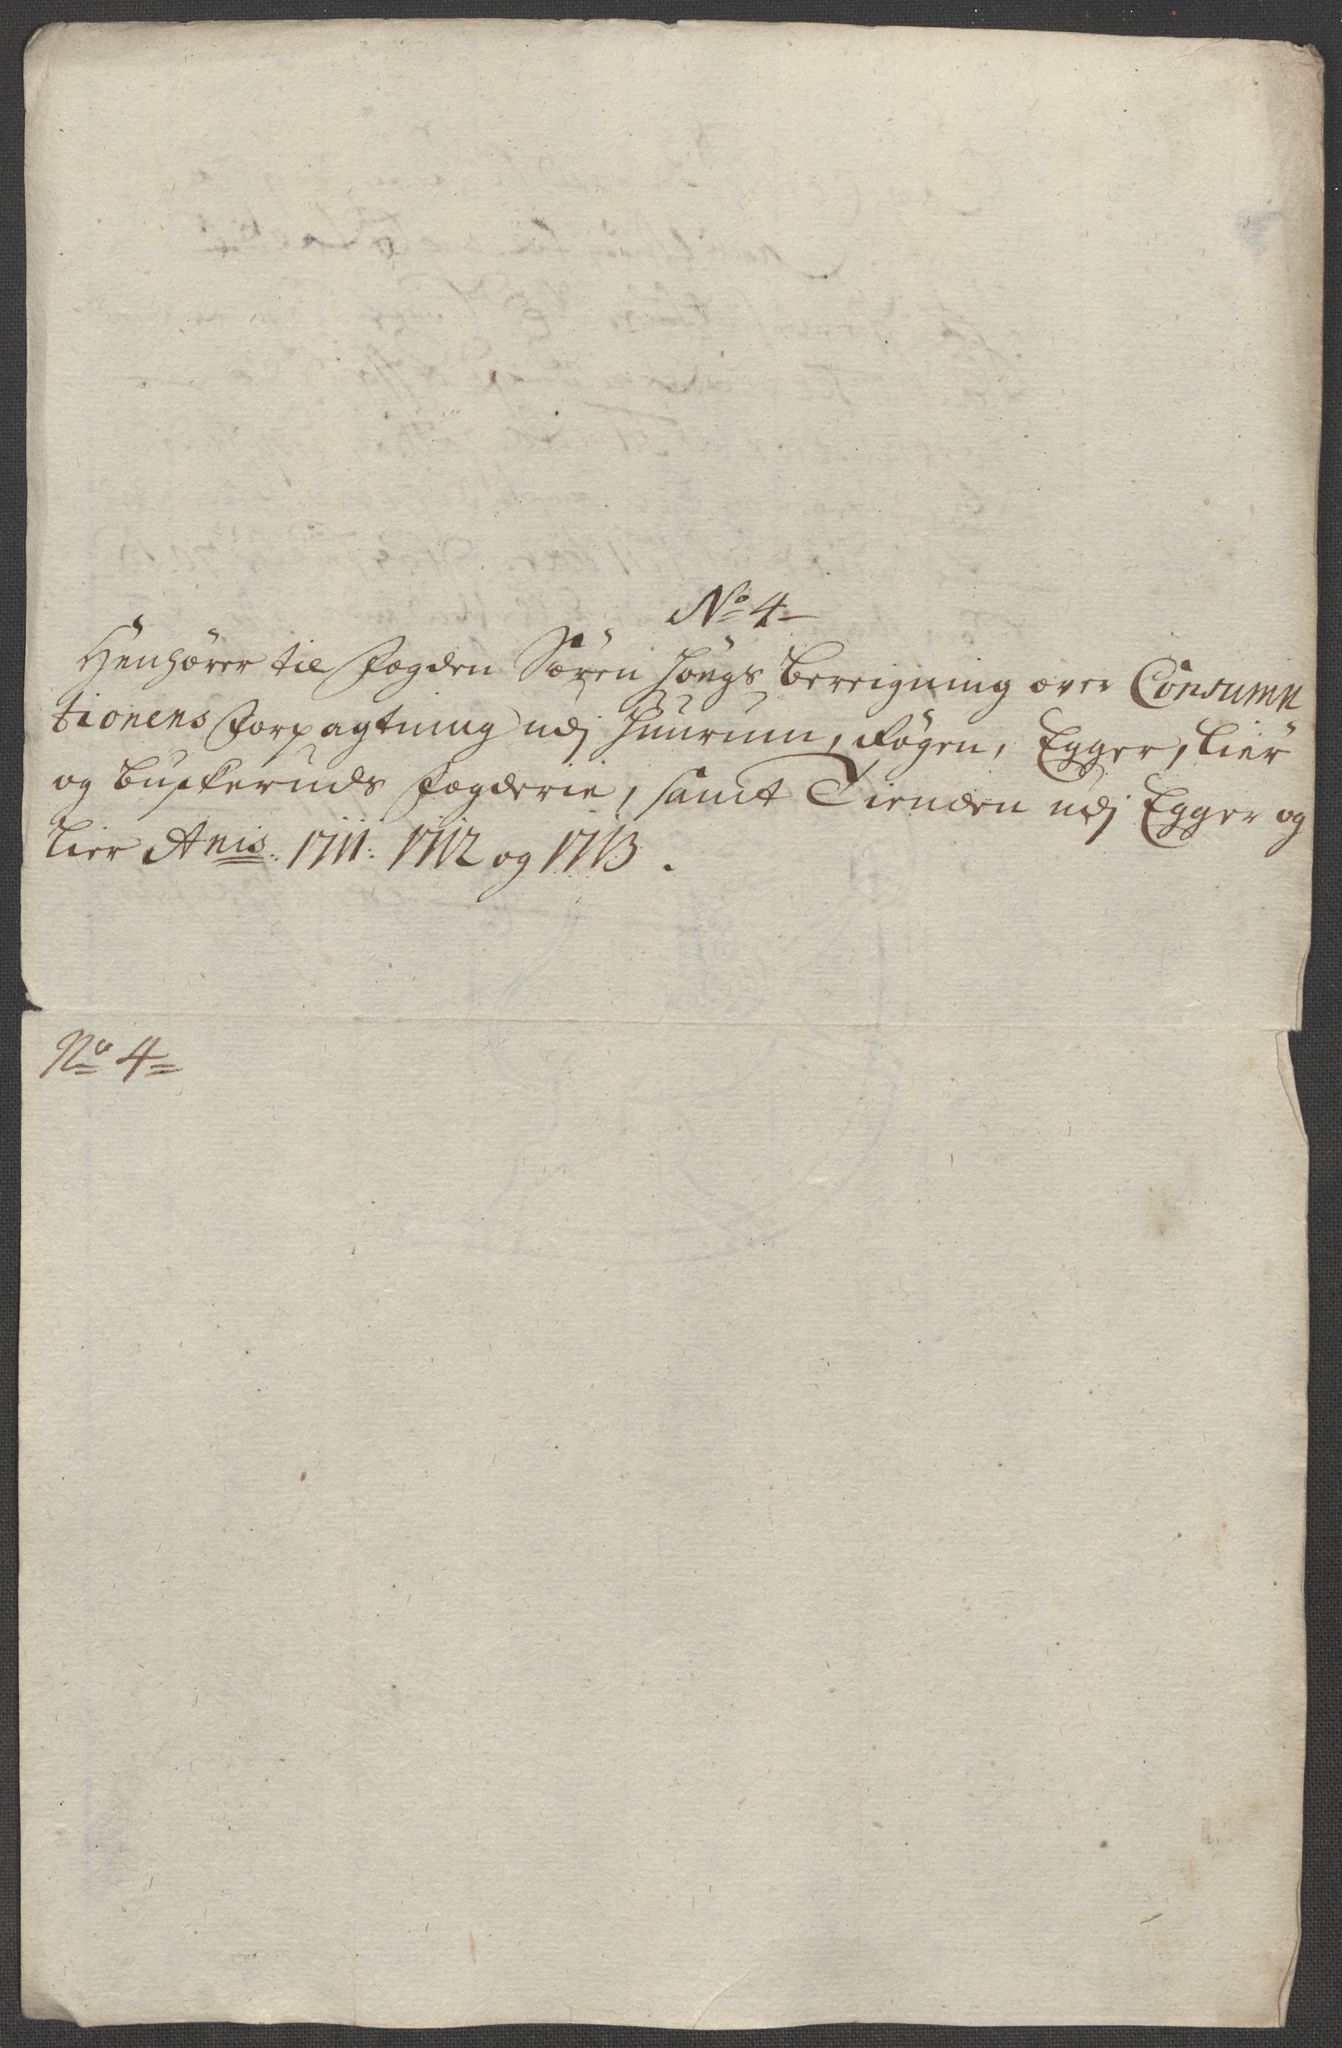 No 4
Henhører til Fogden Søren Høegs Bereigning over Consump
tionens Forpagtning udj Huurum, Røgen, Egger, Lier
og Buskeruds Fogderie, samt Tienden udj Egger og
Lier Anis. 1711: 1712 og 1713.
No 4